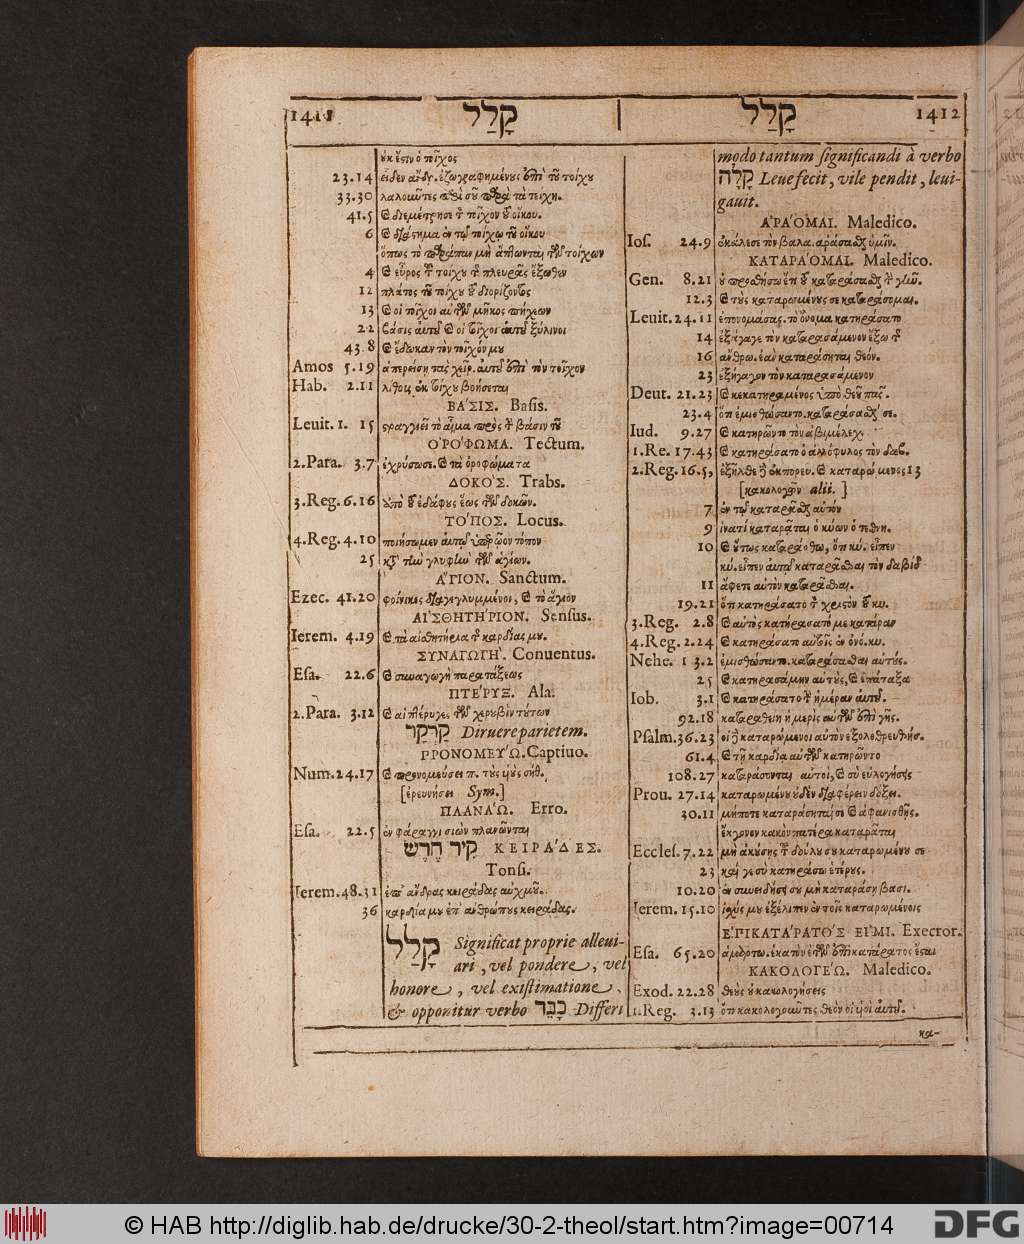 1411 קָלַל קָלַל 1412
ὐκ ἔςιν ὁ τοῖχος
23.14 εἶδεν ἄνδρ. ἐζωγραφημένους ἐπὶ τοῦ τοίχου
33.30 λαλοῦντες περὶ σοῦ παρὰ τὰ τείχη.
41.5 καὶ διεμέτρησε τ τοῖχον τοῦ οἴκου.
6 καὶ διάςημα ἐν τῷ τοίχῳ τοῦ οἴκου
ὅπως τὸ παράπαν μὴ ἅπτωνται τῶν τοίχων
4 καὶ εὖρος τοῦ τοίχου τ πλευρᾶς ἔξωθεν
12 πλάτος τοῦ τοίχου τοῦ διορίζοντος
13 καὶ οἱ τοῖχοι αὐτῶν μῆκος πήχεων
22 βάσις αὐτοῦ καὶ οἱ τοῖχοι αὐτοῦ ξύλινοι
43.8 καὶ ἔδωκαν τὸν τοῖχόν μου
Amos 5.19 ἀπερείση τὰς χεῖρ. αὐτοῦ ἐπὶ τὸν τοῖχον
Hab. 2.11 λίθος ἐκ τοίχου βοήσεται
ΒΑ΄ΣΙΣ. Basis.
Leuit. 1. 15 ςραγγιεῖ τὸ αἷμα πρὸς τ βάσιν τοῦ
ΟΡΟ΄ΦΩΜΑ. Tectum.
2.Para. 3.7 ἐχρύσωσε. καὶ τὰ ὀροφώματα
ΔΟΚΟ΄Σ. Trabs.
3.Reg. 6.16 ἀπὸ τοῦ ἐδάφους ἕως τῶν δοκῶν.
ΤΟ΄ΠΟΣ. Locus.
4.Reg. 4.10 ποιήσωμεν αὐτῷ ὑπερῷον τόπον
25 κτ τὴν γλυφὴν τῶν ἁγίων.
Α῞ΓΙΟΝ. Sanctum.
Ezec. 41.20 φοίνικες διαγεγλυμμένοι, καὶ τὸ ἅγιον
ΑΙΣΘΗΤΗ΄ΡΙΟΝ. Sensus.
Ierem. 4.19 καὶ τὰ αἰσθητήρια τ καρδίας μου.
ΣΥΝΑΓΩΓΗ΄. Conuentus.
Esa. 22.6 καὶ συναγωγὴ παρατάξεως
ΠΤΕ΄ΡΥΞ. Ala.
2.Para. 3.12 καὶ αἱ πτέρυγες τῶν χερυβὶν τούτων
קִרְקֵר Diruere parietem.
ΠΡΟΝΟΜΕΥ΄Ω. Captiuo.
Num. 24.17 καὶ προνομεύσει π. τοὺς υἱοὺς σήθ.
[ἐρευνήσει Sym.]
ΠΛΑΝΑ΄Ω. Erro.
Esa. 22.5 ἐν φάραγγι σιὼν πλανῶνται
קִיר חֶרֶשׂ ΚΕΙΡΑ΄ΔΕΣ.
Tonsi.
Ierem. 48.31 ἐπ' ἄνδρας κειράδας αὐχμοῦ.
36 καρδία μου ἐπ' ἀνθρώπους κειράδας.
קָלַל Significat proprie alleui-
ari, vel pondere, vel
honore, vel existimatione,
& opponitur verbo כָּבֵד Differt
modo tantum significandi à verbo
קָלָה Leue fecit, vile pendit, leui-
gauit.
ΑΡΑ΄ΟΜΑΙ. Maledico.
Ios. 24.9 ἐκάλεσε τὸν βαλα. ἀράσασθαι ὑμῖν.
ΚΑΤΑΡΑ΄ΟΜΑΙ. Maledico.
Gen. 8.21 οὐ προσθήσω ἔτι τοῦ καταράσασθαι τ γῆν.
12.3 καὶ τοὺς καταρωμένους σε καταράσομαι.
Leuit. 24.11 ἐπονομάσας. τὸ ὄνομα κατηράσατο
14 ἐξάγαγε τὸν καταρασάμενον ἔξω τ
16 ἄνθρω. ἐὰν καταράσηται θεόν.
23 ἐξήγαγον τὸν καταρασάμενον
Deut. 21.23 καὶ κεκατηραμένος ὑπὸ θεοῦ πᾶς.
23.4 ὅτι ἐμισθώσαντο. καταράσασθαί σε.
Iud. 9.27 καὶ κατηρῶντο τὸν ἀβιμέλεχ.
1.Re. 17.43 καὶ κατηράσατο ὁ ἀλλόφυλος τὸν δαβ.
2.Reg. 16.5, ἐξῆλθε δὲ ἐκπορευ. καὶ καταρώμενος 13
[κακολογῶν alii.]
7 ἐν τῷ καταρᾶσθαι αὐτὸν
9 ἱνατί καταρᾶται ὁ κύων ὁ τεθνη.
10 καὶ οὕτως καταράσθω, ὅτι κύ. εἶπεν
κύ. εἶπεν αὐτῷ καταρᾶσθαι τὸν δαβίδ
11 ἄφετε αὐτὸν καταρᾶσθαι.
19.21 ὅτι κατηράσατο τ χριςὸν τοῦ κυ.
3.Reg. 2.8 καὶ αὐτὸς κατηράσατό με κατάραν
4.Reg. 2.24 καὶ κατηράσατο αὐτοῖς ἐν ὀνό. κυ.
Nehe. 13.2 ἐμισθώσαντο. καταράσασθαι αὐτούς.
25 καὶ κατηρασάμην αὐτούς, καὶ ἐπάταξα
Iob. 3.1 καὶ κατηράσατο τ ἡμέραν αὐτοῦ.
92.18 καταραθείη ἡ μερὶς αὐτῶν ἐπὶ γῆς.
Psalm. 36.23 οἱ δὲ καταρώμενοι αὐτὸν ἐξολοθρευθήσ.
61.4 καὶ τῇ καρδίᾳ αὐτῶν κατηρῶντο
108.27 καταράσονται αὐτοὶ, καὶ σὺ εὐλογήσεις
Prou. 27.14 καταρωμένου οὐδὲν διαφέρειν δόξει.
30.11 μήποτε καταράσηταί σε καὶ ἀφανισθῇς.
ἔκγονον κακὸν πατέρα καταρᾶται
Eccles. 7.22 μὴ ἀκούσῃς τοῦ δούλου σου καταρωμένου σε
23 καί γε σὺ κατηράσω ἑτέρους.
10.20 ἐν συνειδήσει σου μὴ καταράσῃ βασι.
Ierem. 15.10 ἰσχύς μου ἐξέλιπεν ἐν τοῖς καταρωμένοις
ΕΠΙΚΑΤΑ΄ΡΑΤΟ΄Σ ΕΙΜΙ. Execror.
Esa. 65.20 ἁμαρτω. ἑκατὸν ἐτῶν ἐπικατάρατος ἔςαι
ΚΑΚΟΛΟΓΕ΄Ω. Maledico.
Exod. 22.28 θεοὺς οὐ κακολογήσεις
1.Reg. 3.13 ὅτι κακολογοῦντες θεὸν οἱ υἱοὶ αὐτοῦ.
κα-
© HAB http://diglib.hab.de/drucke/30-2-theol/start.htm?image=00714
DFG